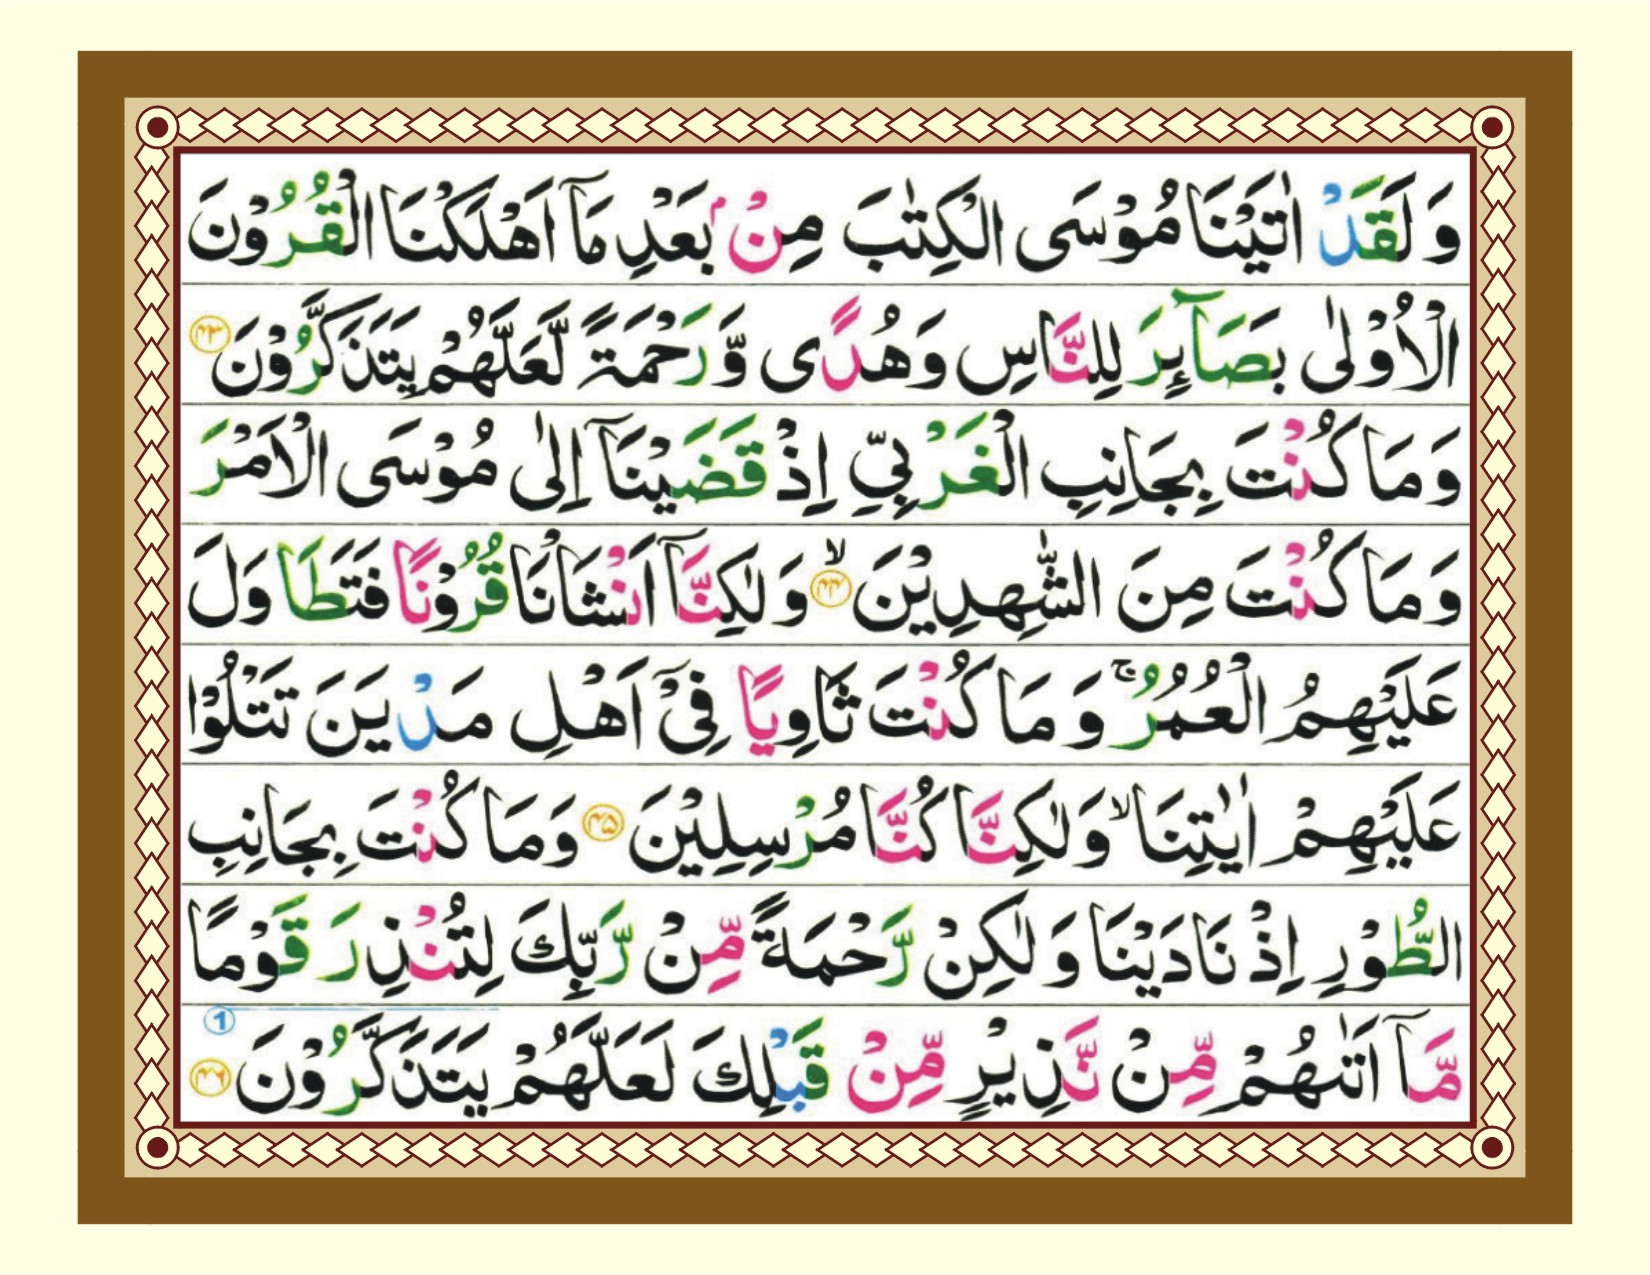 وَ لَقَدْ اٰتَيْنَا مُوْسَى الْكِتٰبَ مِنْۢ بَعْدِ مَاۤ اَهْلَكْنَا الْقُرُوْنَ
الْاُوْلٰى بَصَآئِرَ لِلنَّاسِ وَهُدًى وَّرَحْمَةً لَّعَلَّهُمْ يَتَذَكَّرُوْنَ ۴۳
وَمَا كُنْتَ بِجَانِبِ الْغَرْبِيِّ اِذْ قَضَيْنَاۤ اِلٰى مُوْسَى الْاَمْرَ
وَمَا كُنْتَ مِنَ الشّٰهِدِيْنَ ۙ۴۴ وَلٰكِنَّاۤ اَنْشَاْنَا قُرُوْنًا فَتَطَاوَلَ
عَلَيْهِمُ الْعُمُرُ ۚ وَمَا كُنْتَ ثَاوِيًا فِيْۤ اَهْلِ مَدْيَنَ تَتْلُوْا
عَلَيْهِمْ اٰيٰتِنَا ۙ وَلٰكِنَّا كُنَّا مُرْسِلِيْنَ ۴۵ وَمَا كُنْتَ بِجَانِبِ
الطُّوْرِ اِذْ نَادَيْنَا وَلٰكِنْ رَّحْمَةً مِّنْ رَّبِّكَ لِتُنْذِرَ قَوْمًا
مَّاۤ اَتٰىهُمْ مِّنْ نَّذِيْرٍ مِّنْ قَبْلِكَ لَعَلَّهُمْ يَتَذَكَّرُوْنَ ۴۶ 1